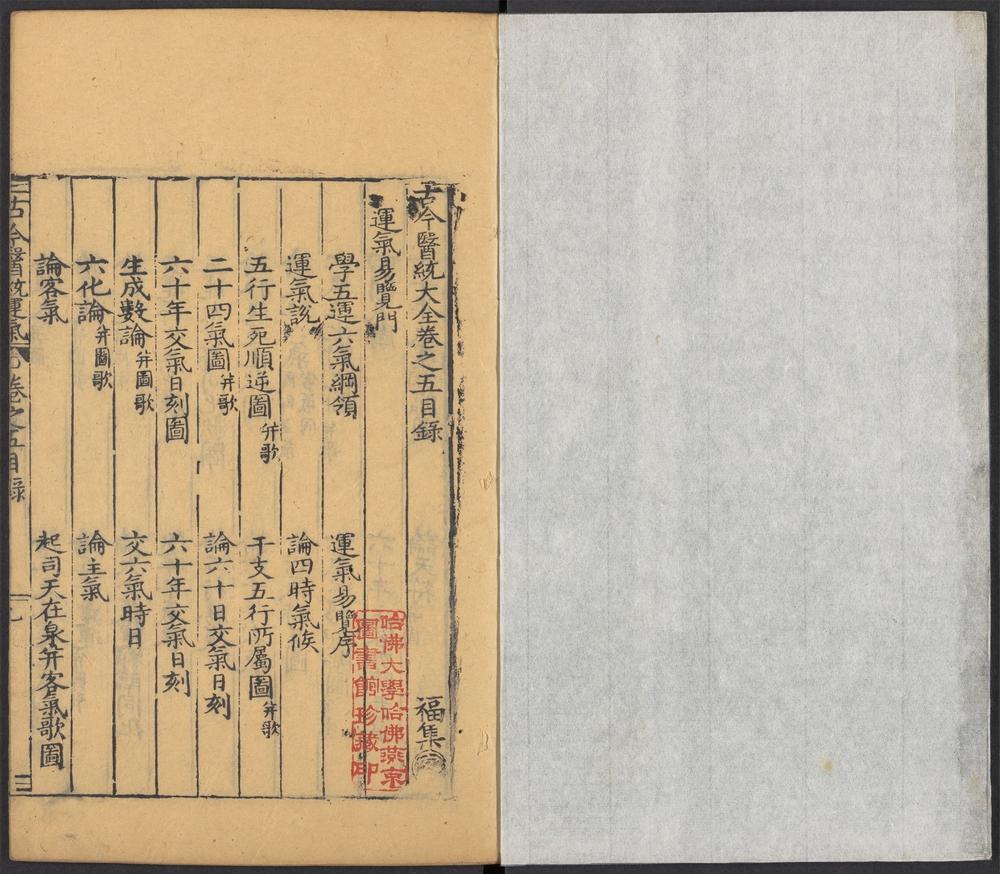 古今醫統大全卷之五目錄
福集
運氣易覽門
學五運六氣綱領
運氣易覽序
運氣說
論四時氣候
五行生死順逆圖并歌
干支五行所屬圖并歌
二十四氣圖并歌
論六十日交氣日刻
六十年交氣日刻圖
六十年交氣日刻
生成數論并圖歌
交六氣時日
六化論并圖歌
論主氣
論客氣
起司天在泉并客氣歌圖
古今醫統運氣
卷之五目錄
哈佛大學哈佛燕京
圖書館珍藏印